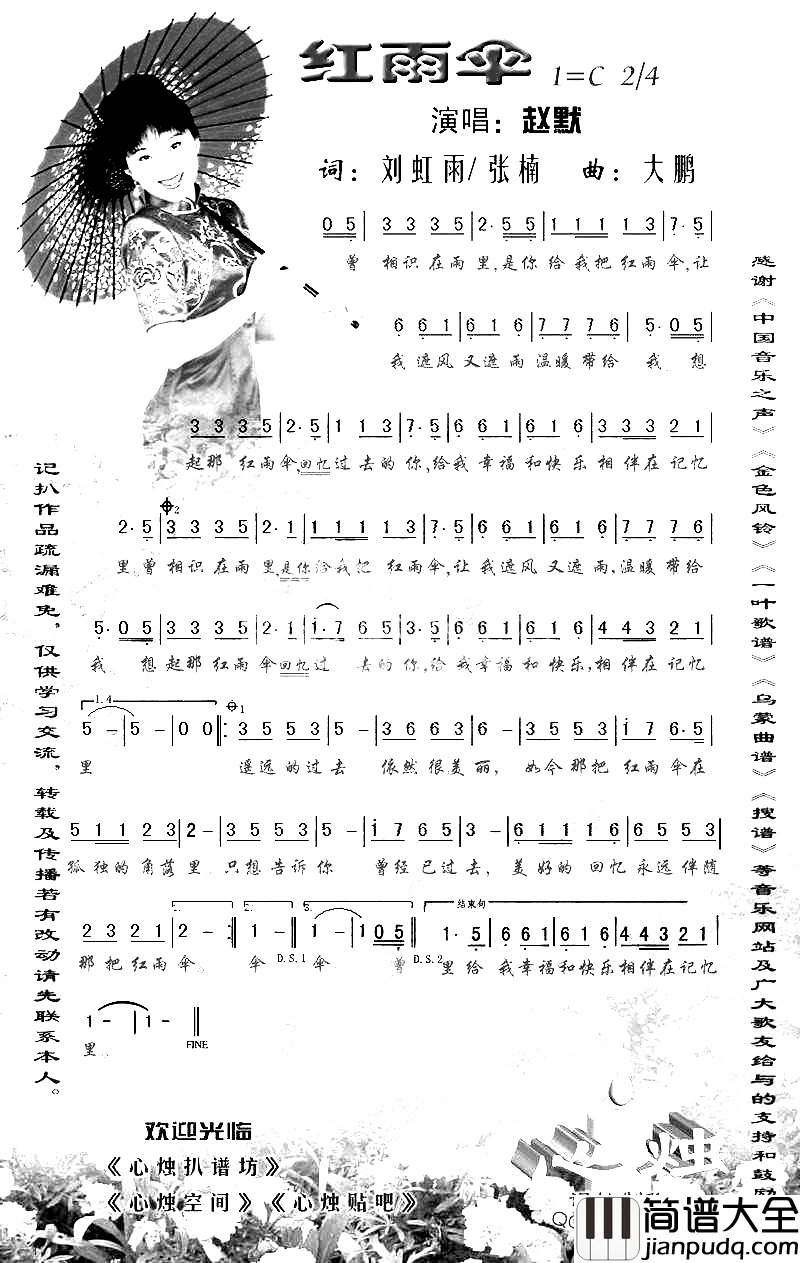 红雨伞 1=C 2/4
演唱：赵默
词：刘虹雨/张楠 曲：大鹏
0 5 | 3 3 3 5 | 2· 5 5 | 1 1 1 1 3 | 7· 5 |
曾 相识在雨里,是你给我把红雨伞,让
6 6 1 | 6 1 6 | 7 7 7 6 | 5· 0 5 |
我遮风又遮雨温暖带给 我 想
3 3 3 5 | 2· 5 | 1 1 3 | 7· 5 | 6 6 1 | 6 1 6 | 3 3 3 2 1 |
起那红雨伞,回忆过去的你,给我幸福和快乐相伴在记忆
2· 5 | 3 3 3 5 | 2· 1 | 1 1 1 1 3 | 7· 5 | 6 6 1 | 6 1 6 | 7 7 7 6 |
里曾相识在雨里,是你给我把红雨伞,让我遮风又遮雨,温暖带给
5· 0 5 | 3 3 3 5 | 2· 1 | 1· 7 6 5 | 3· 5 | 6 6 1 | 6 1 6 | 4 4 3 2 1 |
我 想起那红雨伞回忆过 去的你,给我幸福和快乐,相伴在记忆
1.4
5 - | 5 - | 0 0 :| 3 5 5 3 | 5 - | 3 5 5 3 | 6 - | 3 5 5 3 | 1 7 | 6· 5 |
里 遥远的过去 依然很美丽, 如今那把红雨伞在
5 1 1 2 3 | 2 - | 3 5 5 3 | 5 - | 1 7 6 5 | 3 - | 6 1 1 1 6 | 5 6 5 3 |
孤独的角落里 只想告诉你 曾经已过去,美好的回忆永远伴随
2. 3. 结束句
2 3 2 1 | 2 - | 1 - | 1 - | 1 0 5 | 1· 5 | 6 6 1 | 6 1 6 | 4 4 3 2 1 |
那把红雨伞。 伞 D.S.1 伞 曾 D.S.2 里给我幸福和快乐相伴在记忆
1 - | 1 - ||
里。 FINE
记扒作品疏漏难免，仅供学习交流，转载及传播若有改动请先联系本人。
感谢《中国音乐之声》《金色风铃》《一叶歌谱》《乌蒙曲谱》《搜谱》等音乐网站及广大歌友给与的支持和鼓励
欢迎光临
《心烛扒谱坊》
《心烛空间》《心烛贴吧》
简谱大全
jianpudq.com